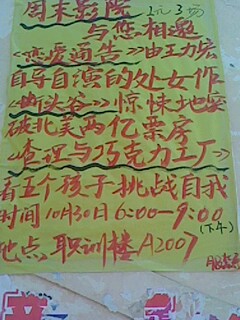 周末影院 2元3场
与您相邀
《恋爱通告》由王力宏
自导自演的处女作
《断头谷》惊悚地
破北美两亿票房
《查理与巧克力工厂》
看五个孩子挑战自我
时间10月30日6:00-9:00
(下午)
地点职训楼A2007